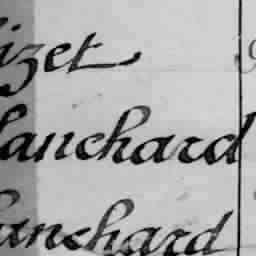 izet
lanchard
anchard